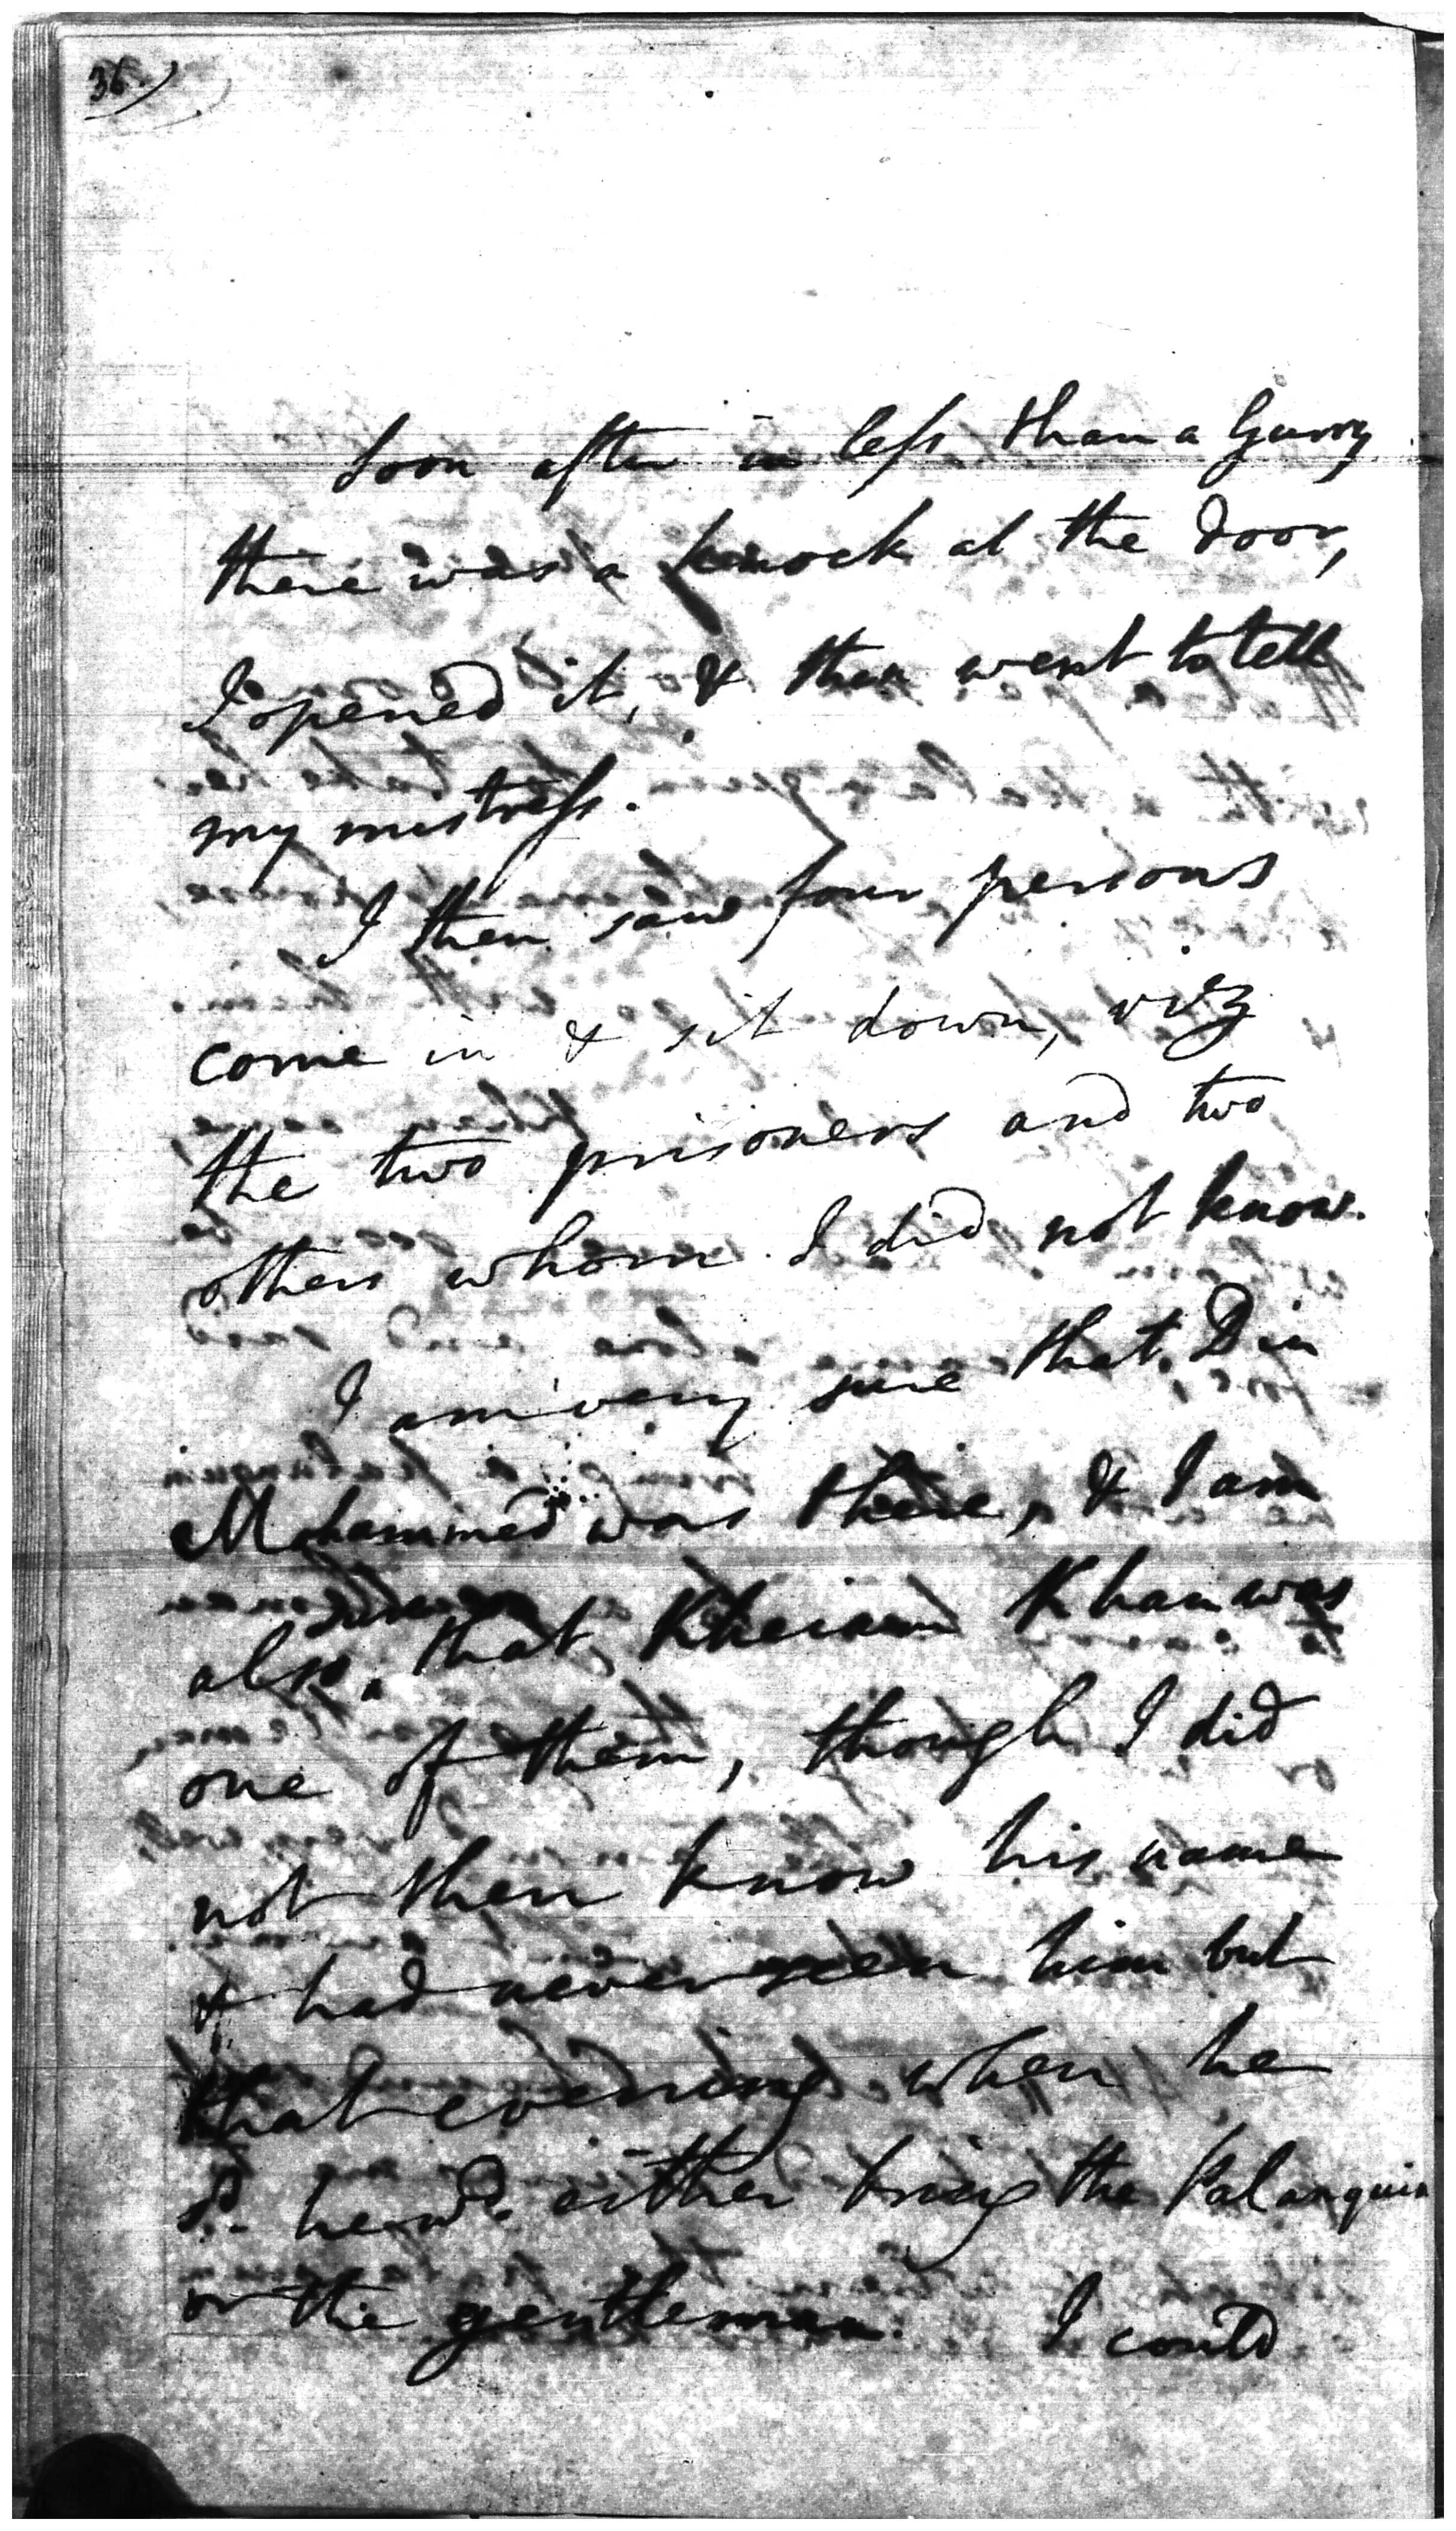 36.
Soon after in less than a Gurry
there was a knock at the door,
I opened it, & then went to tell
my mistress.
I then saw four persons
come in & sit down, viz
the two prisoners and two
others whom I did not know.
I am very sure that Din
Mohammed was there, & I am
also that Kheiram Khan was
one of them, though I did
not then know his name
& had never seen him but
that evening when he
sd. he wd. either bring the Palanquin
or the gentleman. I could